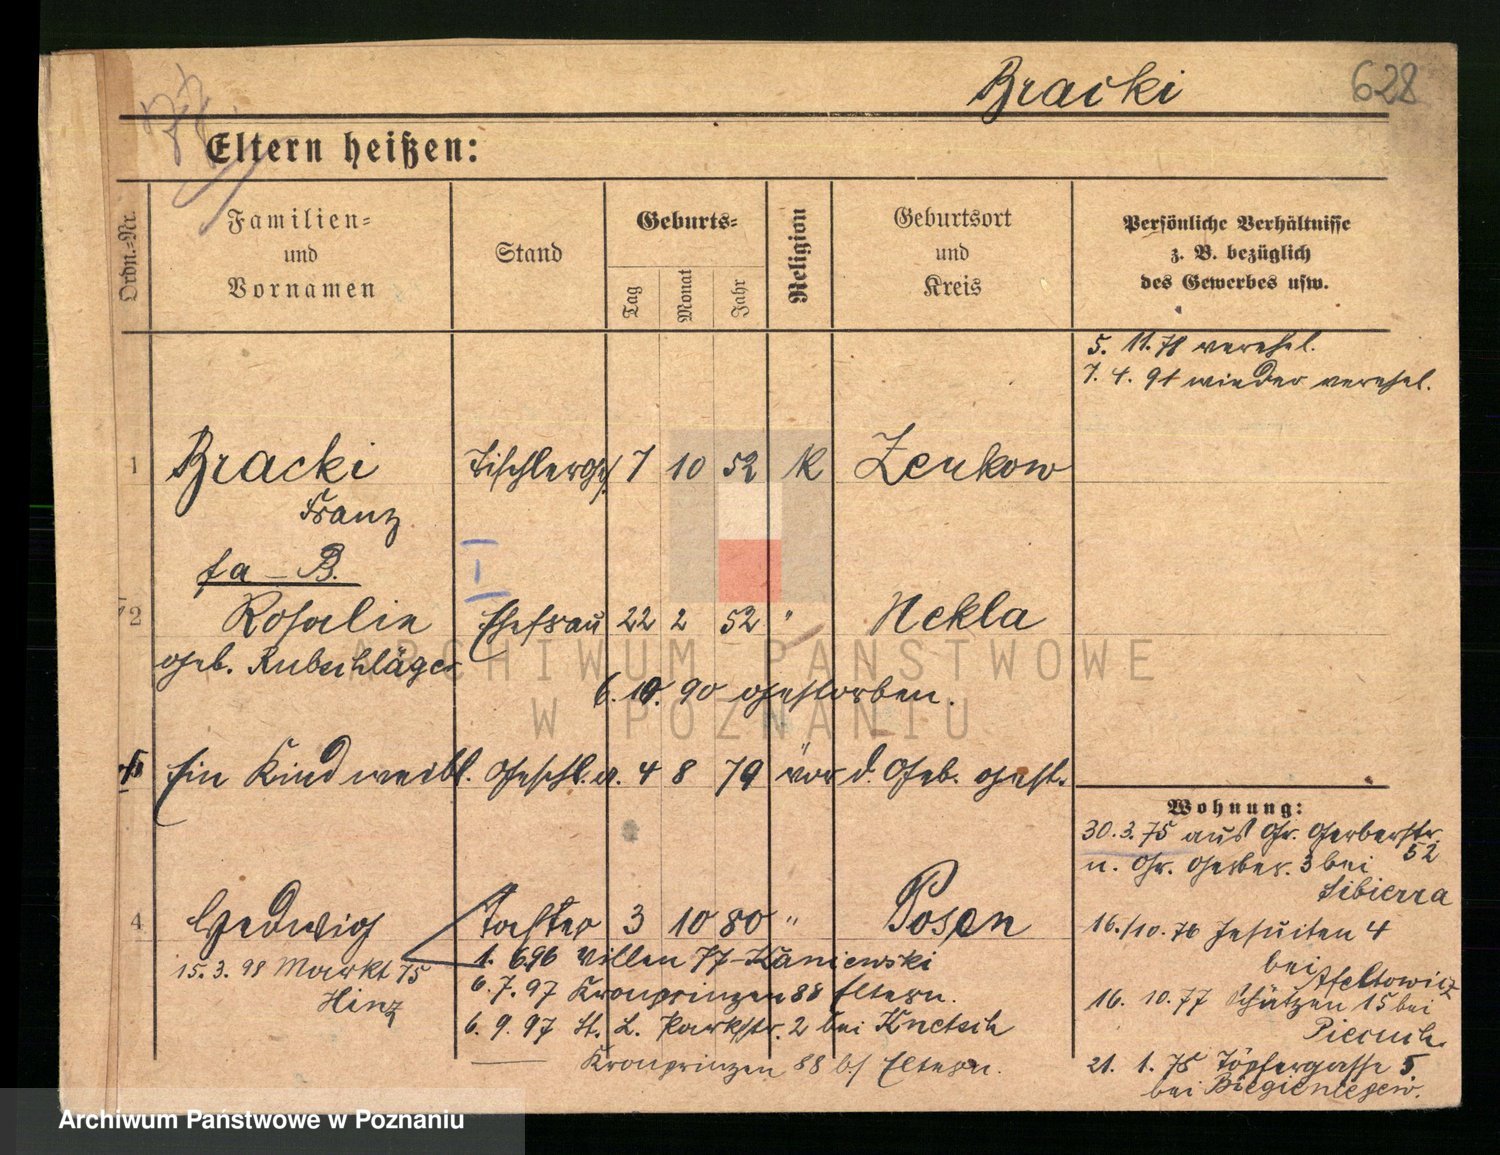 Bracki 628
Eltern heißen:
Ordn.=Nr.
Familien=
und
Vornamen
Stand
Geburts=
Tag
Monat
Jahr
Religion
Geburtsort
und
Kreis
Persönliche Verhältnisse
z. B. bezüglich
des Gewerbes usw.
5. 11. 78 verehel.
7. 4. 91 wieder verehel.
1 Bracki Tischlerges. 7 10 52 K Zerkow
Franz
fa – B.
2 Rosalie Ehefrau 22 2 52 " Nekla
geb. Rubschläger
6. 10. 90 gestorben.
Ein Kind weibl. Geschl. a. 4 8 79 vor d. Geb. gest.
4 Hedwig Tochter 3 10 80 " Posen
15. 3. 98 Markt 75
Hinz
1. 6.96 Villen 77 – Kaniewski
6. 7. 97 Kronprinzen 88 Eltern.
6. 9. 97 St. L. Parkstr. 2 bei Knetsch
Kronprinzen 88 b/ Eltern.
Wohnung:
30. 3. 75 aus Gr. Gerberstr.
52
n. Gr. Gerber. 3 bei
Libierra
16./10. 76 Jesuiten 4
bei Afeltowicz
16. 10. 77 Schützen 15 bei
21. 1. 78 Töpfergasse 5
bei
ARCHIWUM PAŃSTWOWE
W POZNANIU
Archiwum Państwowe w Poznaniu